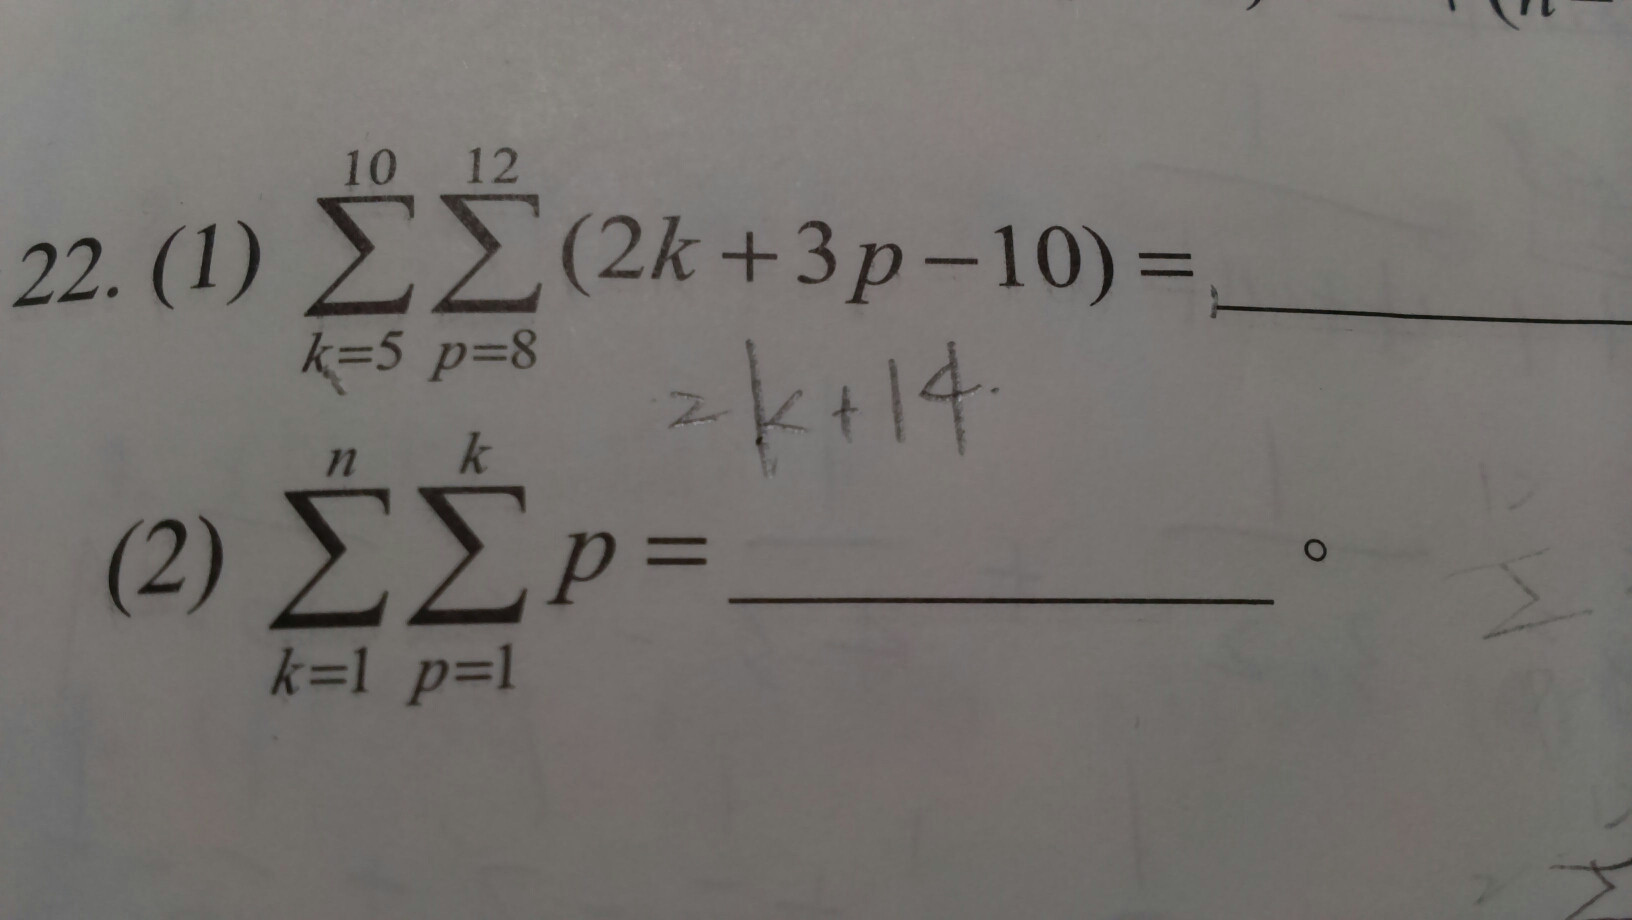 22. (1) \sum_{k=5}^{10} \sum_{p=8}^{12} (2k+3p-10) =
2k+14
(2) \sum_{k=1}^{n} \sum_{p=1}^{k} p = 。